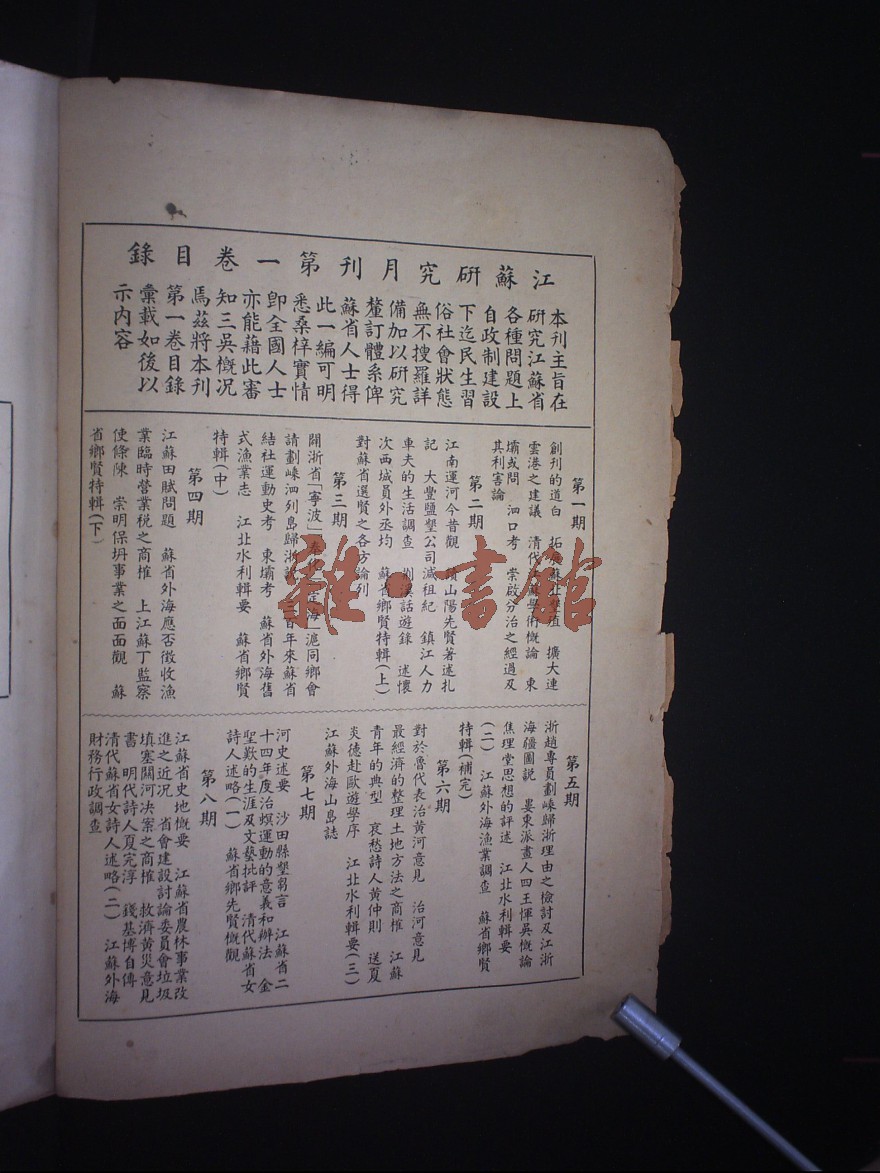 江蘇研究月刊第一卷目錄
本刊主旨在
研究江蘇省
各種問題上
自政制建設
下迄民生習
俗社會狀態
無不搜羅詳
備加以研究
釐訂體系俾
蘇省人士得
此一編可明
悉桑梓實情
卽全國人士
亦能藉此審
知三吳概况
焉茲將本刊
第一卷目錄
彙載如後以
示内容
第一期
創刊的道白 拓 擴大連
雲港之建議 清代 蘇學術概論 東
壩或問 泗口考 崇啟分治之經過及
其利害論
第二期
江南運河今昔觀 山陽先賢著述扎
記 大豐鹽墾公司減租紀 鎮江人力
車夫的生活調查 荆溪話遊錄 述懷
次西城員外丞均 蘇省鄉賢特輯(上)
對蘇省選賢之各方論列
第三期
闢浙省「寧波」 滬同鄉會
請劃嵊泗列島歸浙 百年來蘇省
結社運動史考 東壩考 蘇省外海舊
式漁業志 江北水利輯要 蘇省鄉賢
特輯(中)
第四期
江蘇田賦問題 蘇省外海應否徵收漁
業臨時營業税之商榷 上江蘇丁監察
使條陳 崇明保坍事業之面面觀 蘇
省鄉賢特輯(下)
第五期
浙趙專員劃嵊歸浙理由之檢討及江浙
海疆圖説 婁東派畫人四王惲吳概論
焦理堂思想的評述 江北水利輯要
(二) 江蘇外海漁業調查 蘇省鄉賢
特輯(補完)
第六期
對於魯代表治黃河意見 治河意見
最經濟的整理土地方法之商榷 江蘇
青年的典型 哀愁詩人黃仲則 送夏
炎德赴歐遊學序 江北水利輯要(三)
江蘇外海山島誌
第七期
河史述要 沙田縣墾芻言 江蘇省二
十四年度治螟運動的意義和辦法 金
聖歎的生涯及文藝批評 清代蘇省女
詩人述略(一) 蘇省鄉先賢概觀
第八期
江蘇省史地概要 江蘇省農林事業改
進之近况 省會建設討論委員會垃圾
填塞關河决案之商榷 救濟黃災意見
書 明代詩人夏完淳 錢基博自傳
清代蘇省女詩人述略(二) 江蘇外海
財務行政調查
雜·書館